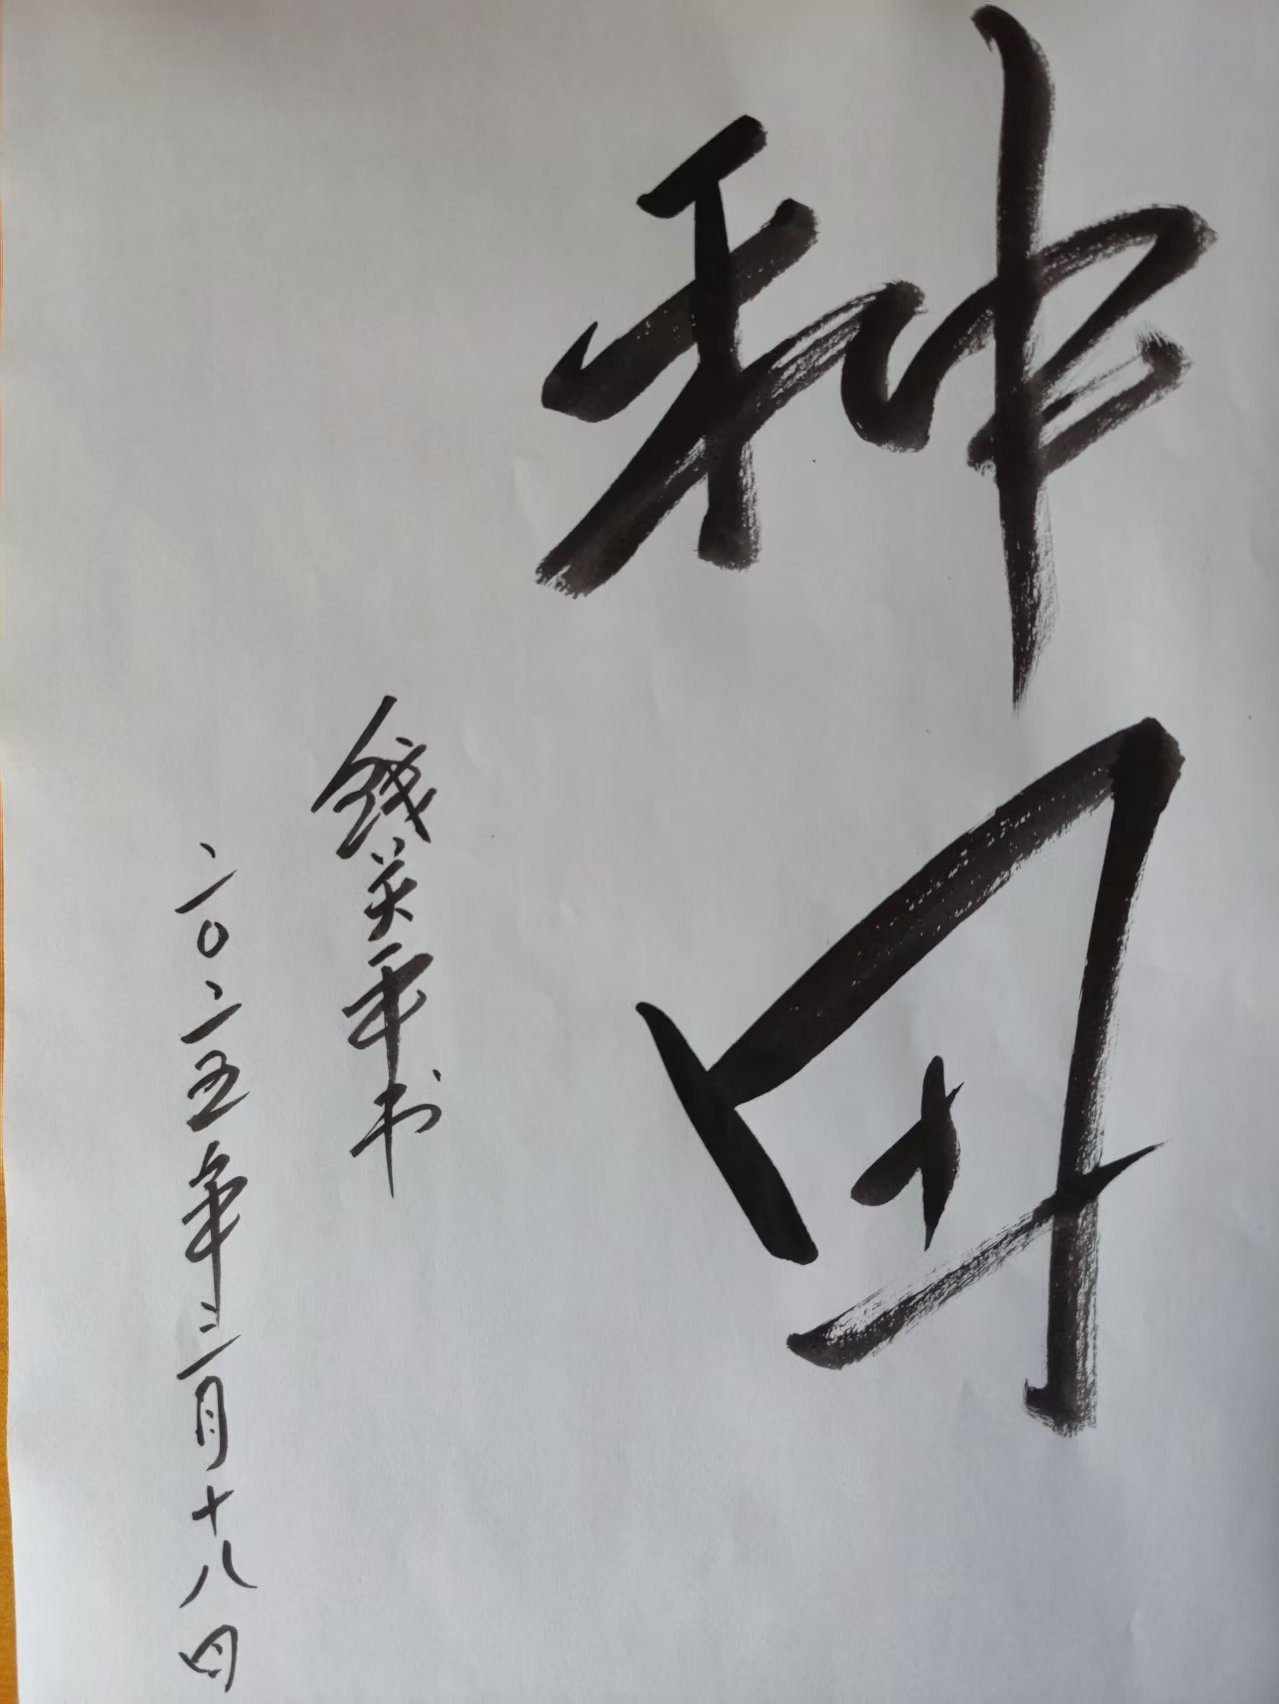 种田
钱关平书
二〇二五年三月十八日